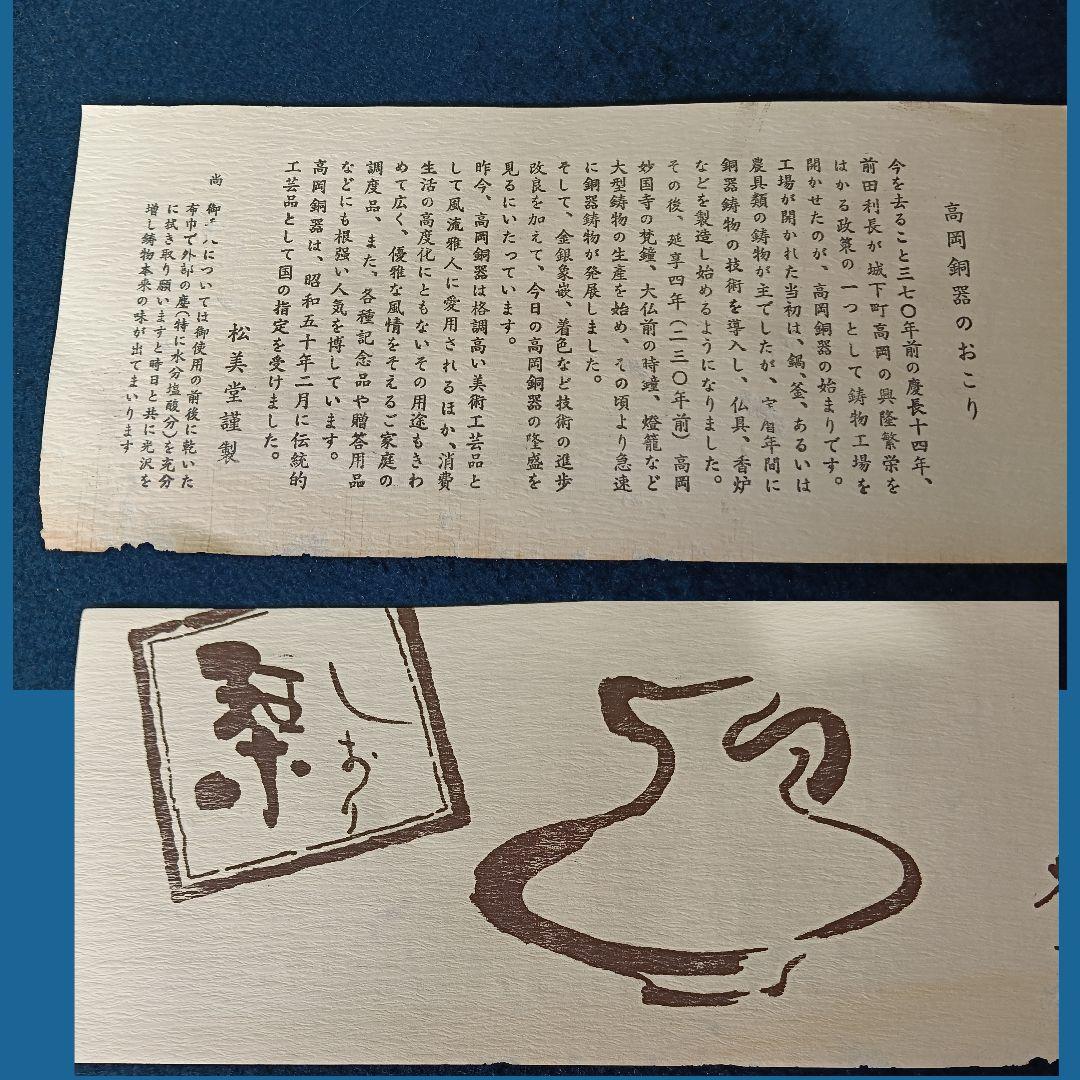 高岡銅器のおこり
今を去ること三七〇年前の慶長十四年、
前田利長が城下町高岡の興隆繁栄を
はかる政策の一つとして鋳物工場を
開かせたのが、高岡銅器の始まりです。
工場が開かれた当初は、鍋、釜、あるいは
農具類の鋳物が主でしたが、宝暦年間に
銅器鋳物の技術を導入し、仏具、香炉
などを製造し始めるようになりました。
その後、延享四年（二三〇年前）高岡
妙国寺の梵鐘、大仏前の時鐘、燈籠など
大型鋳物の生産を始め、その頃より急速
に銅器鋳物が発展しました。
そして、金銀象嵌、着色など技術の進歩
改良を加えて、今日の高岡銅器の隆盛を
見るにいたっています。
昨今、高岡銅器は格調高い美術工芸品と
して風流雅人に愛用されるほか、消費
生活の高度化にともないその用途もきわ
めて広く、優雅な風情をそえるご家庭の
調度品、また、各種記念品や贈答用品
などにも根强い人気を博しています。
高岡銅器は、昭和五十年二月に伝統的
工芸品として国の指定を受けました。
松美堂謹製
尚 御手入については御使用の前後に乾いた
布巾で外部の塵（特に水分塩酸分）を充分
に拭き取り願いますと時日と共に光沢を
増し鋳物本来の味が出てまいります
しおり
栞